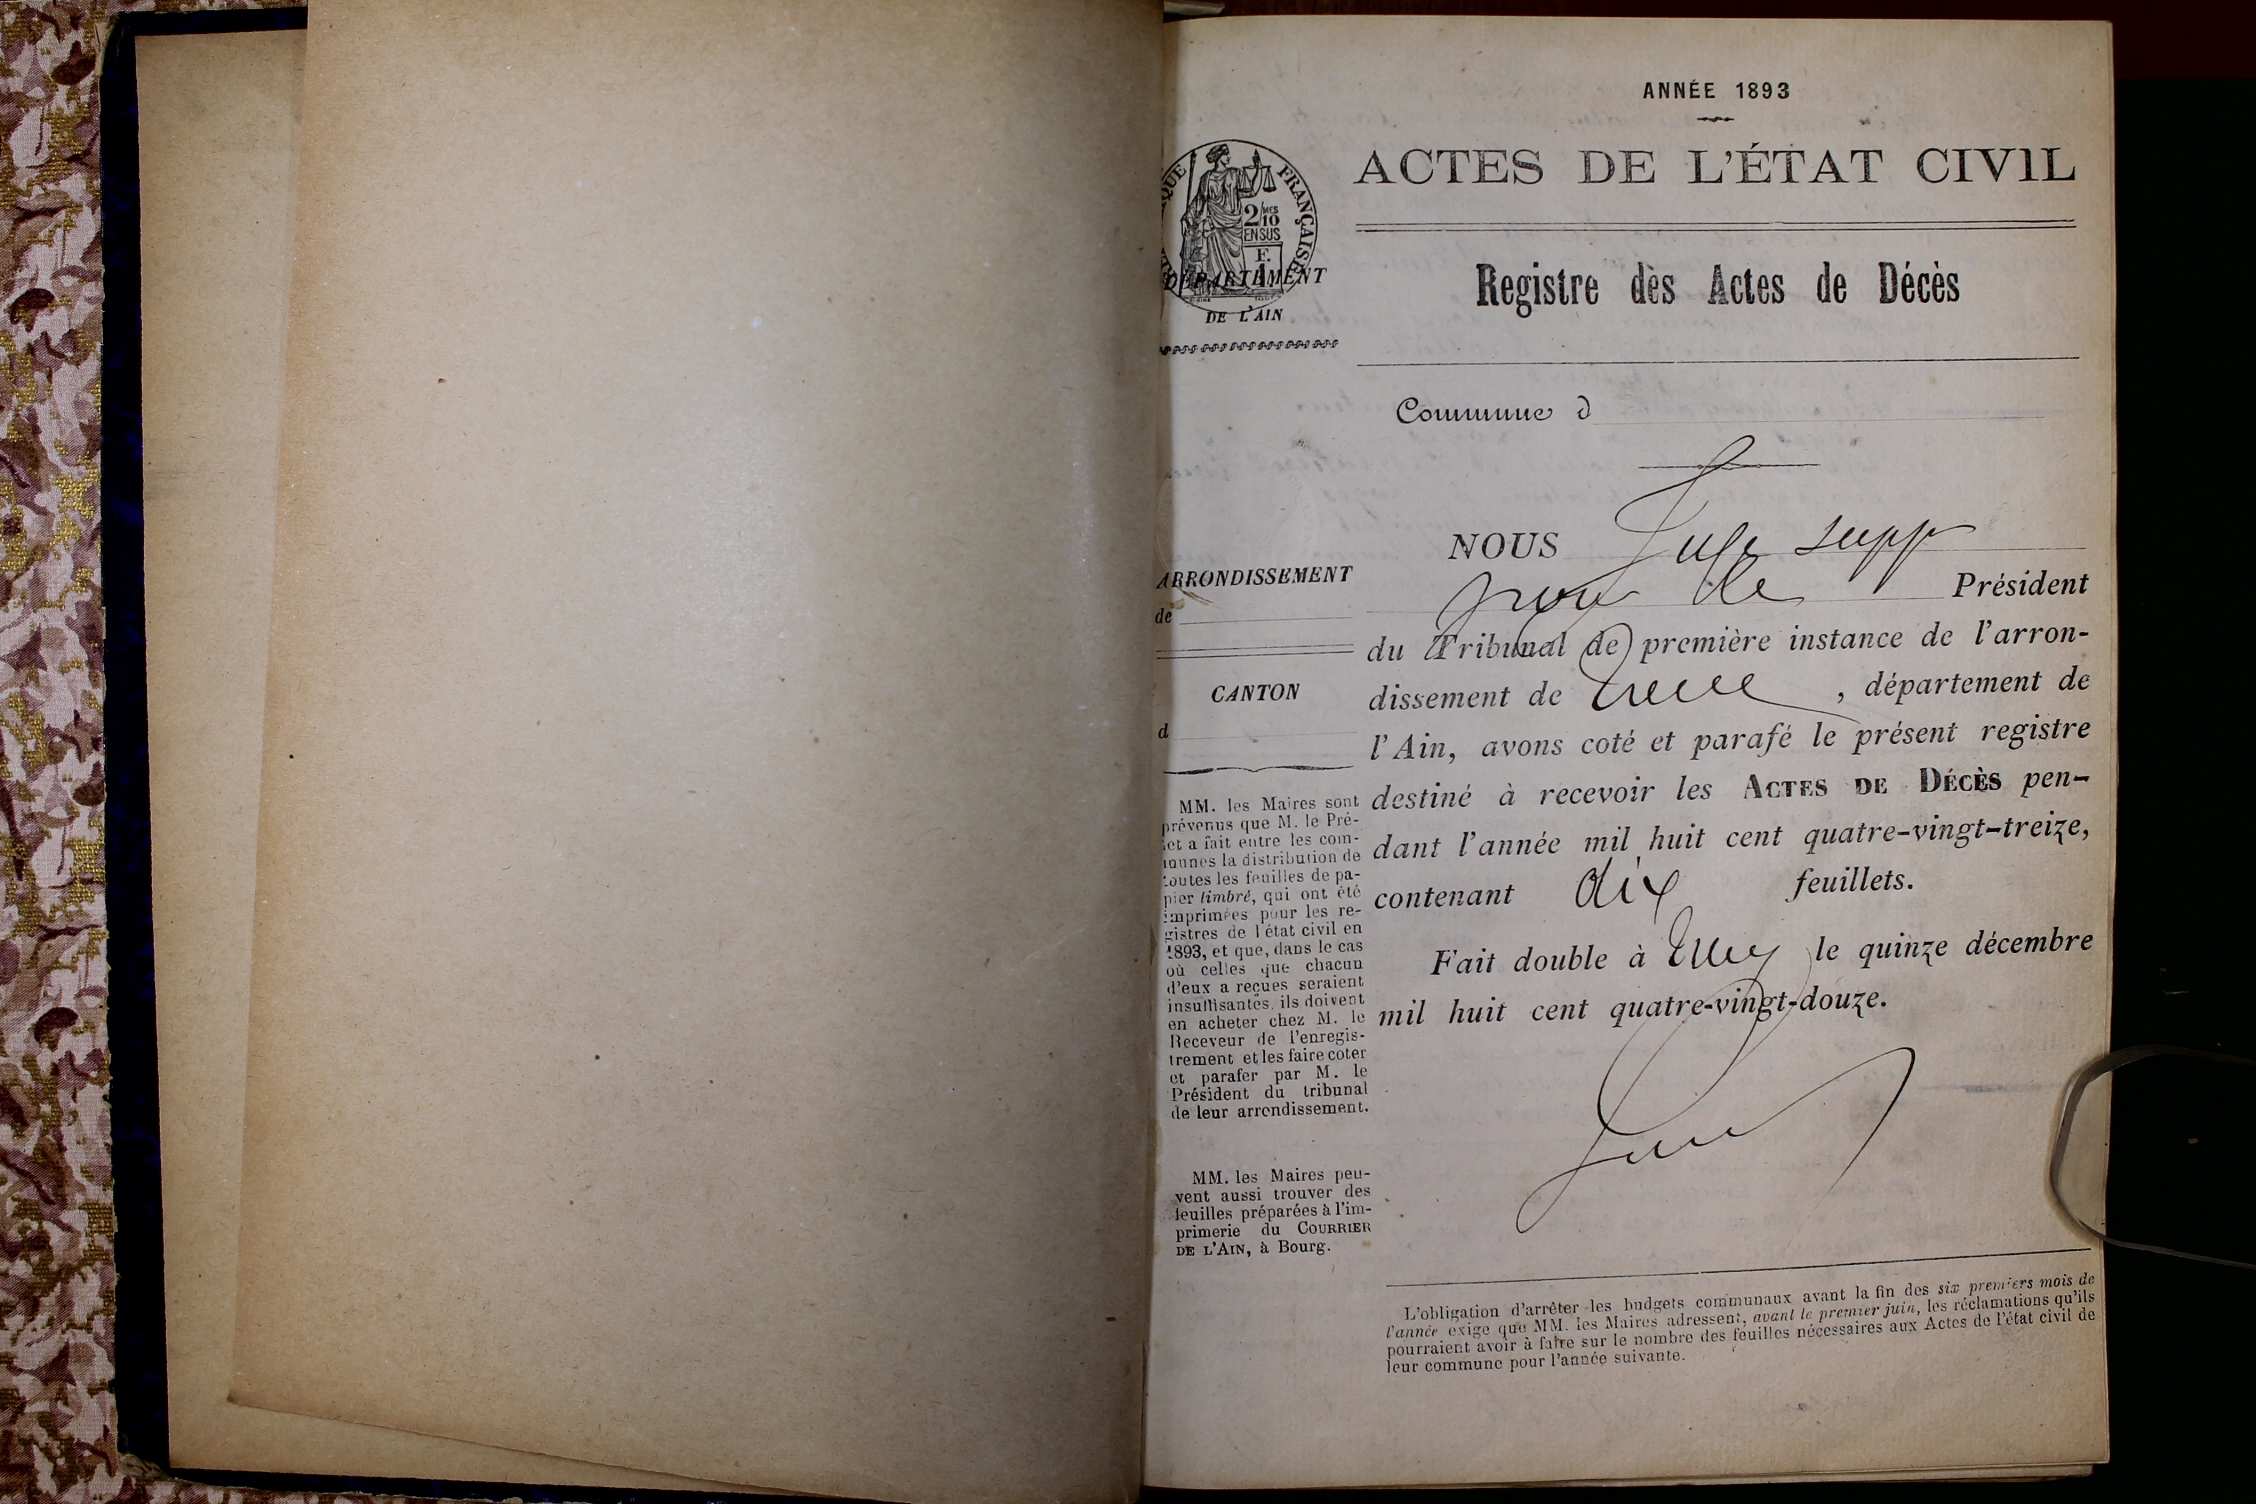 ANNÉE 1893
ACTES DE L'ÉTAT CIVIL
QUE FRANÇAISE
2/10 MES
EN SUS
F.
1
DÉPARTEMENT
DE L'AIN
Registre des Actes de Décès
Commune d
NOUS Juge supp
pour le Président
du Tribunal de première instance de l'arron-
dissement de , département de
l'Ain, avons coté et parafé le présent registre
destiné à recevoir les ACTES DE DÉCÈS pen-
dant l'année mil huit cent quatre-vingt-treize,
contenant dix feuillets.
Fait double à le quinze décembre
mil huit cent quatre-vingt-douze.
ARRONDISSEMENT
de
CANTON
d
MM. les Maires sont
prévenus que M. le Pré-
et a fait entre les com-
munes la distribution de
toutes les feuilles de pa-
pier timbré, qui ont été
imprimées pour les re-
gistres de l'état civil en
1893, et que, dans le cas
où celles que chacun
d'eux a reçues seraient
insuffisantes, ils doivent
en acheter chez M. le
Receveur de l'enregis-
trement et les faire coter
et parafer par M. le
Président du tribunal
de leur arrondissement.
MM. les Maires peu-
vent aussi trouver des
feuilles préparées à l'im-
primerie du COURRIER
DE L'AIN, à Bourg.
L'obligation d'arrêter les budgets communaux avant la fin des six premiers mois de
l'année exige que MM. les Maires adressent, avant le premier juin, les réclamations qu'ils
pourraient avoir à faire sur le nombre des feuilles nécessaires aux Actes de l'état civil de
leur commune pour l'année suivante.